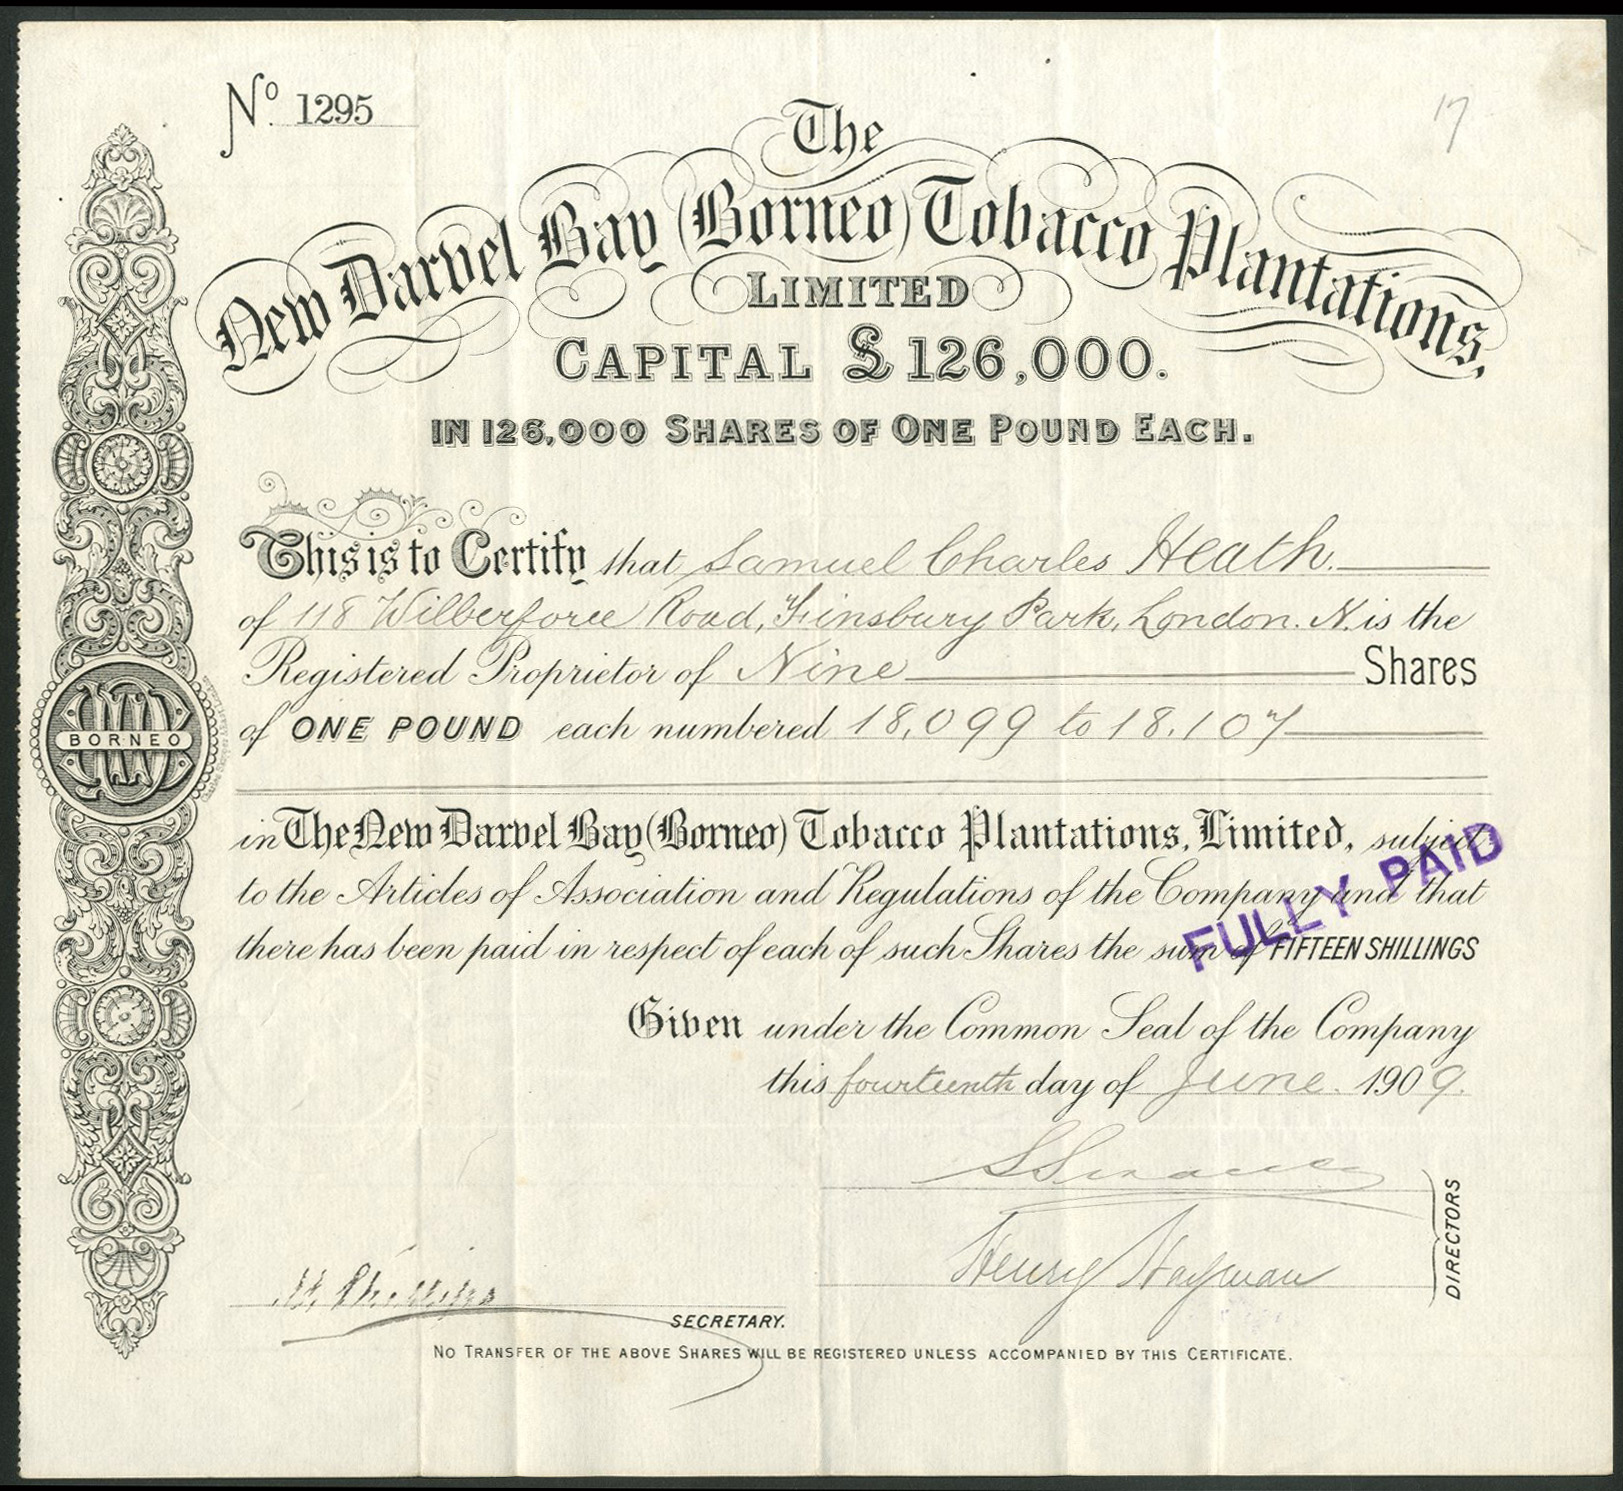 No. 1295
17
The
New Darvel Bay (Borneo) Tobacco Plantations,
LIMITED
CAPITAL £126,000.
IN 126,000 SHARES OF ONE POUND EACH.
This is to Certify that Samuel Charles Heath.
of 118 Wilberforce Road, Finsbury Park, London. N. is the
Registered Proprietor of Nine Shares
of ONE POUND each numbered 18,099 to 18.107
BORNEO
in The New Darvel Bay (Borneo) Tobacco Plantations, Limited, subject
to the Articles of Association and Regulations of the Company and that
there has been paid in respect of each of such Shares the sum of FIFTEEN SHILLINGS
FULLY PAID
Given under the Common Seal of the Company
this fourteenth day of June. 1909.
Henry Hayman
DIRECTORS
H. Phillips
SECRETARY.
NO TRANSFER OF THE ABOVE SHARES WILL BE REGISTERED UNLESS ACCOMPANIED BY THIS CERTIFICATE.